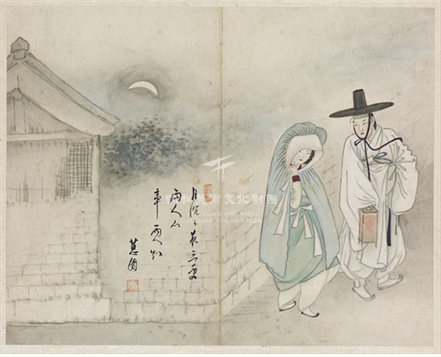 月沈々夜三更
兩人心
事兩人知
蕙園
文化財團